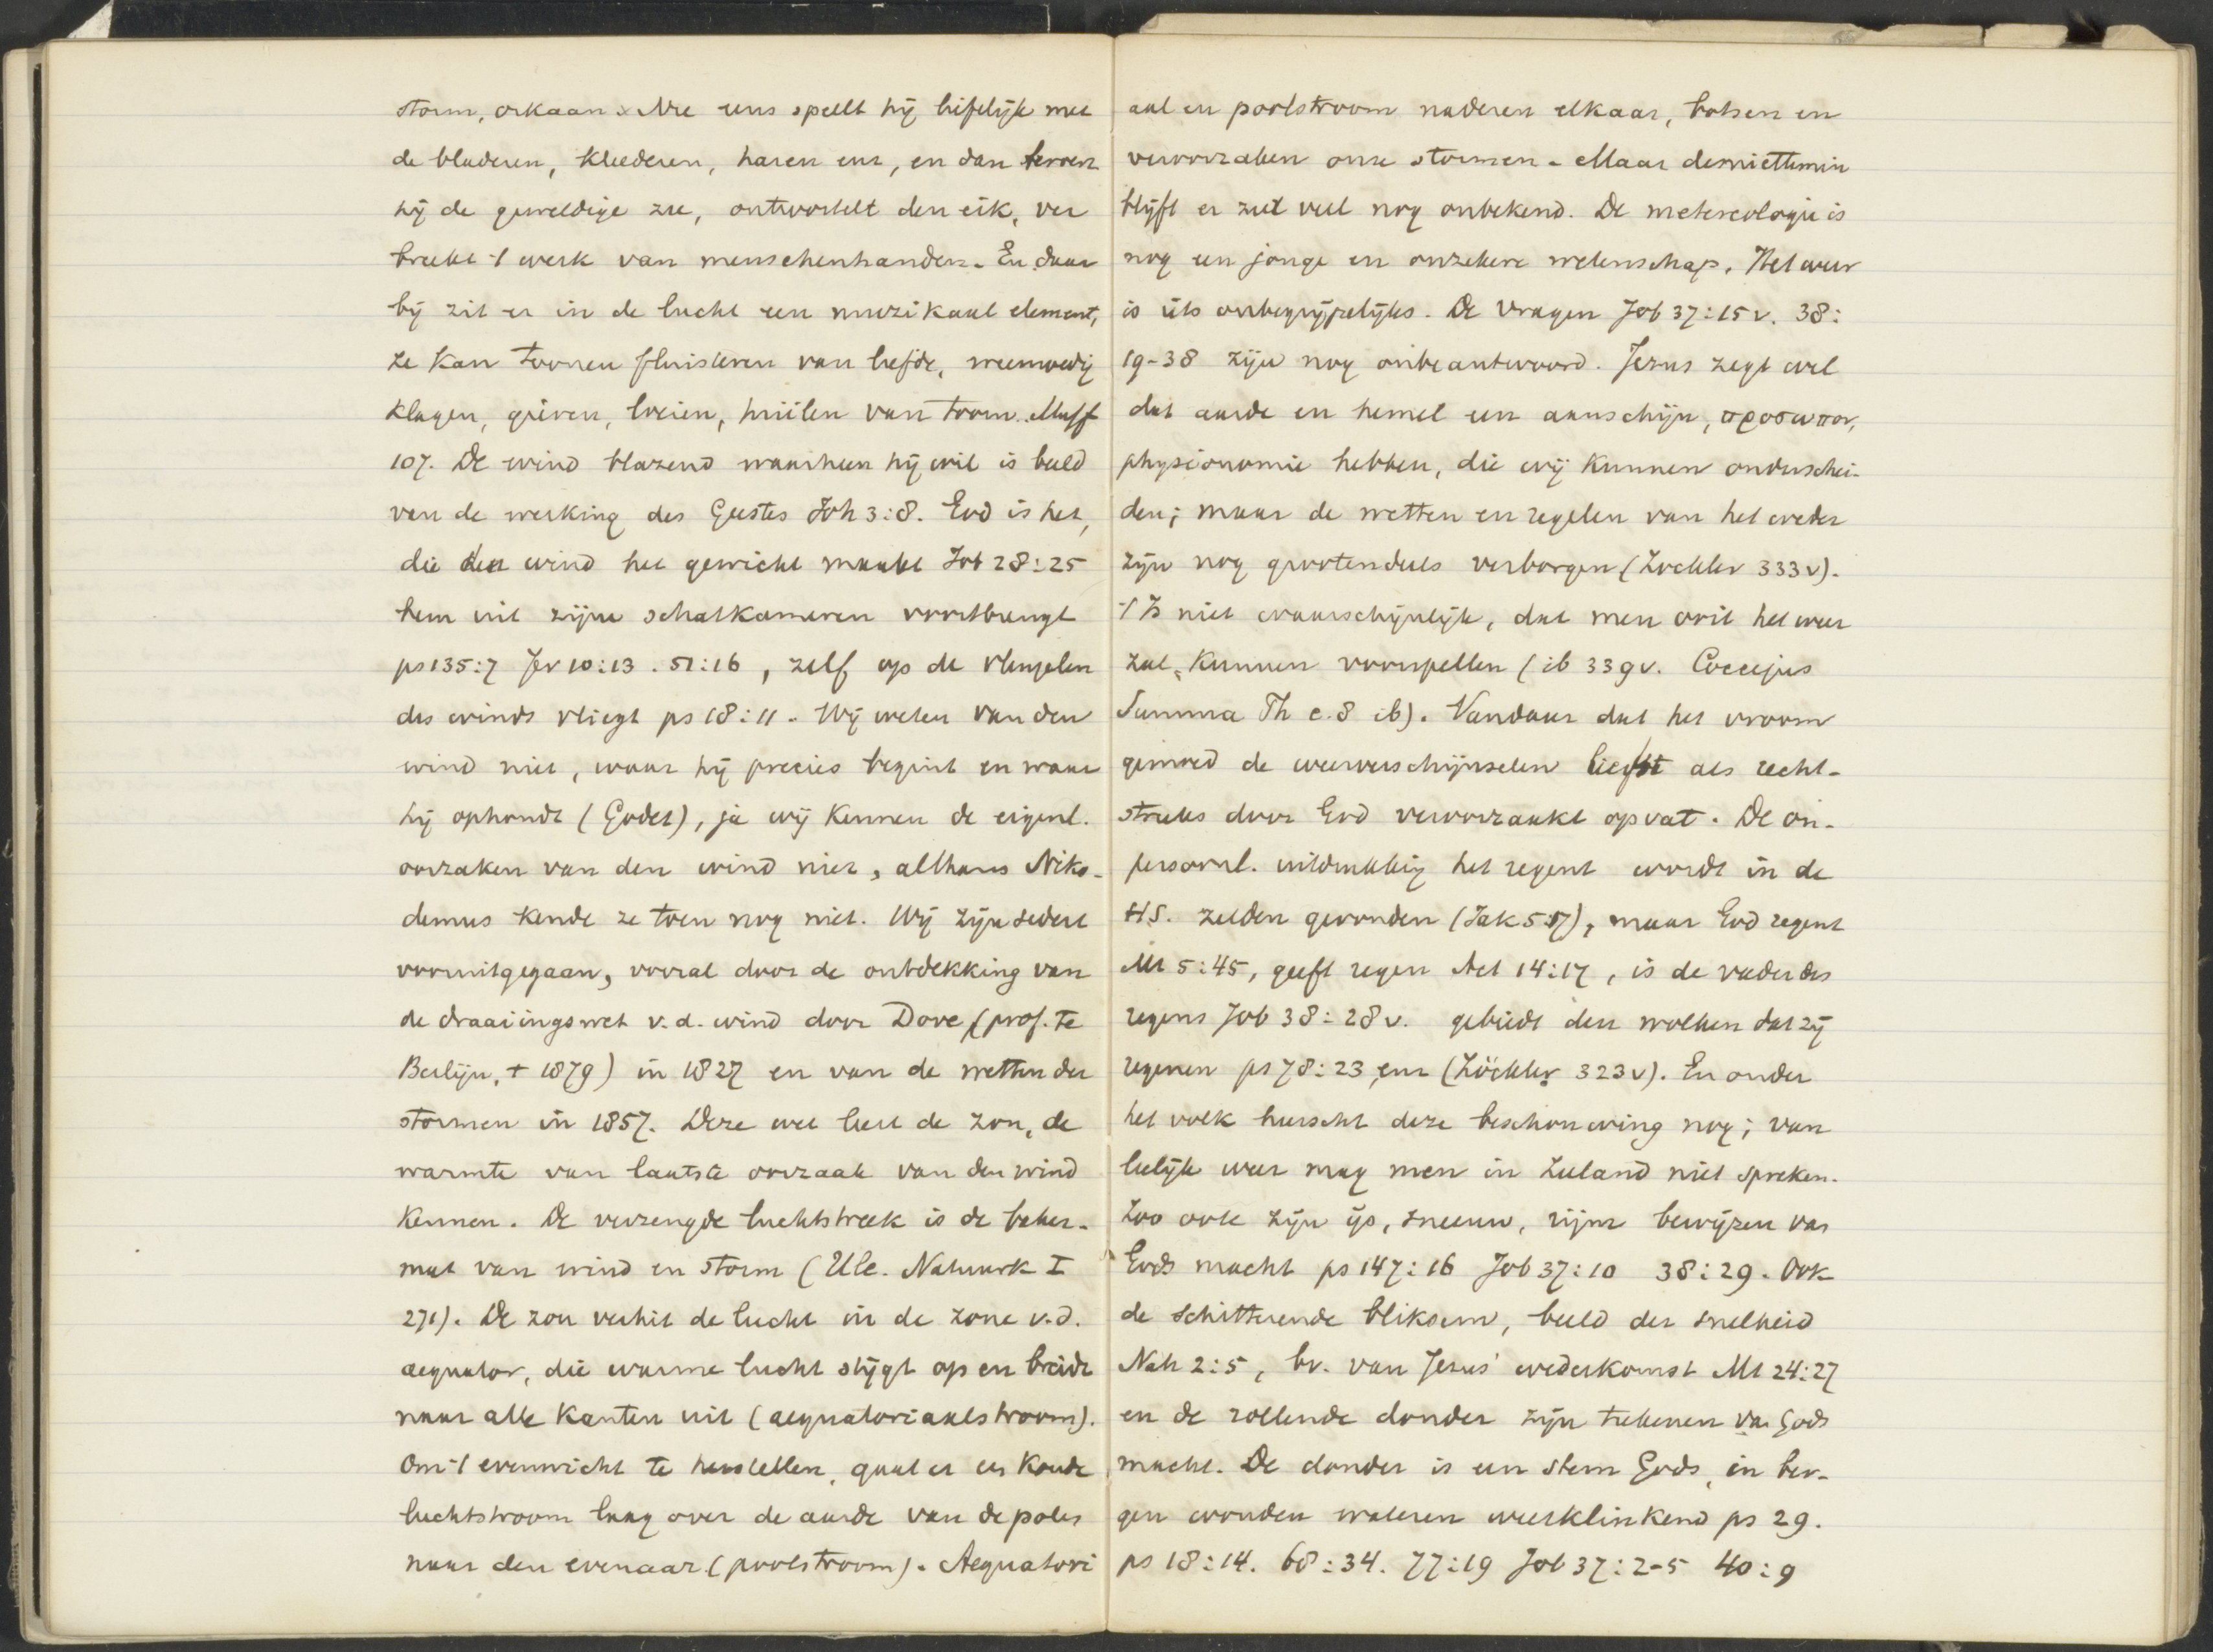 storm, orkaan. Nu eens speelt hij liefelijk met
de bladeren, kleederen, haren enz, en dan beroert
hij de geweldige zee, ontwortelt den eik, ver
breekt 't werk van menschenhanden. En daar
bij zit er in de lucht een muzikaal element,
ze kan toonen fluisteren van liefde, weemoedig
klagen, gieren, loeien, huilen van toorn. Masf
107. De wind blazend waarheen hij wil is beeld
van de werking des Geestes Joh 3:8. God is het,
die den wind het gewicht maakt Job 28:25
hem uit zijne schatkameren voortbrengt
ps 135:7 Jer 10:13. 51:16, zelf op de vleugelen
des winds vliegt ps 18:11. Wij weten van den
wind niet, waar hij precies begint en waar
hij ophoudt (Godet), ja wij kennen de eigenl.
oorzaken van den wind niet, althans Niko-
demus kende ze toen nog niet. Wij zijn sedert
vooruitgegaan, vooral door de ontdekking van
de draaiingswet v.d. wind door Dove (prof. te
Berlijn, † 1879) in 1827 en van de wetten der
stormen in 1857. Deze wet leert de zon, de
warmte van laatste oorzaak van den wind
kennen. De verzengde luchtstreek is de baker-
mat van wind en storm (Ule. Natuurk I
271). De zon verhit de lucht in de zone v.d.
aequator, die warme lucht stijgt op en breidt
naar alle kanten uit (aequatoriaalstroom).
Om 't evenwicht te herstellen, gaat er een koude
luchtstroom laag over de aarde van de polen
naar den evenaar (poolstroom). Aequatori
aal en poolstroom naderen elkaar, botsen en
veroorzaken onze stormen. Maar desniettemin
blijft er zeer veel nog onbekend. De metereologie is
nog een jonge en onzekere wetenschap. Het weer
is iets onbegrijpelijks. De vragen Job 37:15v. 38:
19-38 zijn nog onbeantwoord. Jezus zegt wel
dat aarde en hemel een aanschijn, προσωπον,
physionomie hebben, die wij kunnen onderschei-
den; maar de wetten en regelen van het weder
zijn nog grootendeels verborgen (Zockler 333v).
't Is niet waarschijnlijk, dat men ooit het weer
zal kunnen voorspellen (ib 339v. Coccejus
Summa Th c.8 ib). Vandaar dat het vroom
gemoed de weerverschijnselen liefst als recht-
streeks door God veroorzaakt opvat. De on-
persoonl. uitdrukking het regent wordt in de
HS. zelden gevonden (Jak 5:17), maar God regent
Mt 5:45, geeft regen Act 14:17, is de vader des
regens Job 38:28v. gebiedt den wolken dat zij
regenen ps 78:23, enz (Zöckler 323v). En onder
het volk heerscht deze beschouwing nog; van
leelijk weer mag men in Zeeland niet spreken.
Zoo ook zijn ijs, sneeuw, rijm bewijzen van
Gods macht ps 147:16 Job 37:10 38:29. Ook
de schitterende bliksem, beeld der snelheid
Nah 2:5, bv. van Jezus' wederkomst Mt 24:27
en de rollende donder zijn teekenen van Gods
macht. De donder is een stem Gods, in ber-
gen wouden wateren weerklinkend ps 29.
ps 18:14. 68:34. 77:19 Job 37:2-5 40:9